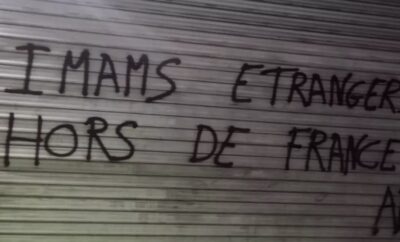 IMAMS ETRANGER
HORS DE FRANCE